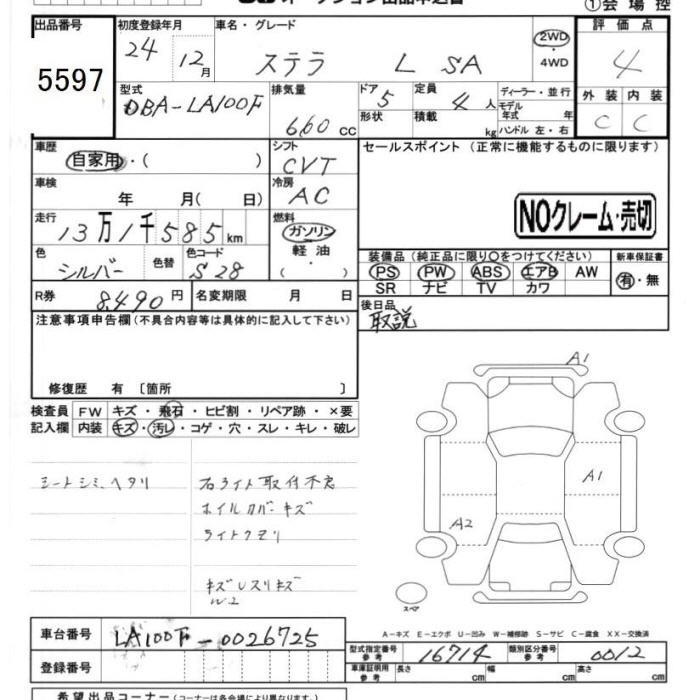 ①会場控
出品番号
5597
初度登録年月
24 12月
車名・グレード
ステラ L SA
2WD
・
4WD
評価点
4
型式
DBA-LA100F
排気量
660 cc
ドア
5
形状
定員
4 人
積載
kg
ディーラー・並行
モデル
年式 年
ハンドル 左・右
外装 内装
C C
車歴
自家用・( )
シフト
CVT
車検
年 月( 日)
冷房
AC
走行
13万1千585km
燃料
ガソリン
軽油
・
( )
色
シルバー
色替
色コード
S28
R券
8,490円
名変期限 月 日
セールスポイント(正常に機能するものに限ります)
NOクレーム・売切
装備品(純正品に限り○をつけてください)
PS PW ABS エアB AW
SR ナビ TV カワ
新車保証書
有・無
後日品
取説
注意事項申告欄(不具合内容等は具体的に記入して下さい)
修復歴 有 〔箇所 〕
検査員
記入欄
FW キズ・飛石・ヒビ割・リペア跡・×要
内装 キズ・汚レ・コゲ・穴・スレ・キレ・破レ
シートシミ、ヘタリ
右ライト取付不良
ホイルカバーキズ
ライトクモリ
A1
A1
A2
スペア
車台番号
LA100F-0026725
登録番号
A-キズ E-エクボ U-凹み W-補修跡 S-サビ C-腐食 XX-交換済
型式指定番号
参考
16714
類別区分番号
参考
0012
車庫証明用
参考
長さ cm 幅 cm 高さ cm
希望出品コーナー(コーナーは各会場により異なります。)